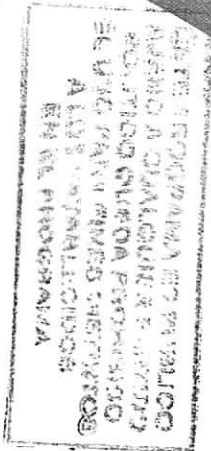 ESTE PROGRAMA ES PUBLICO
AJENO A CUALQUIER PARTIDO
POLITICO QUEDA PROHIBIDO
EL USO PARA FINES DISTINTOS
A LOS ESTABLECIDOS
EN EL PROGRAMA